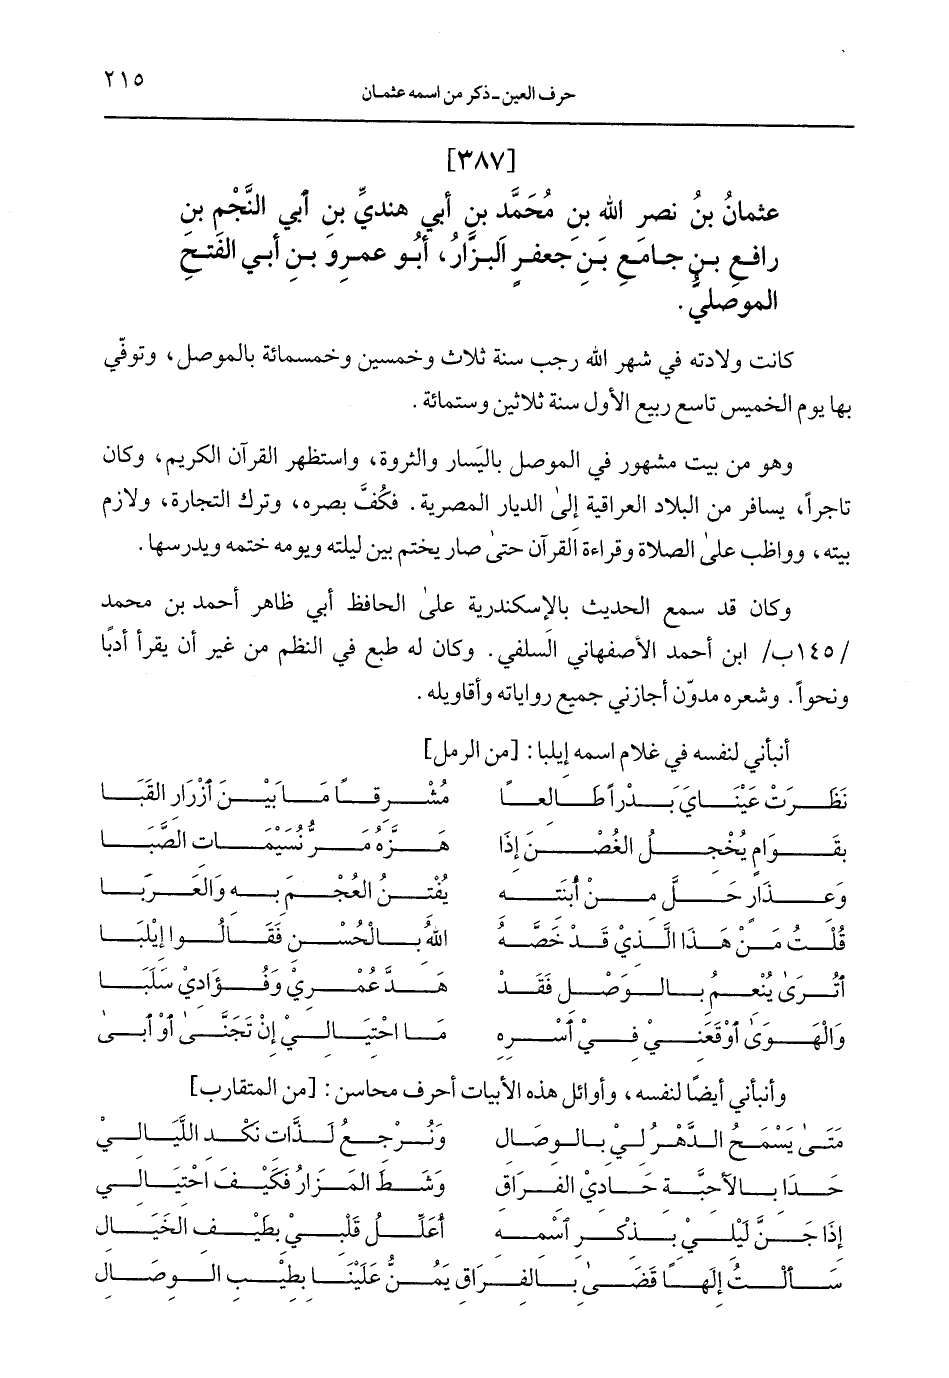 ٢١٥
حرف العين ـ ذكر من اسمه عثمان
[٣٨٧]
عثمانُ بنُ نصر الله بن مُحَمَّد بنِ أبي هنديِّ بن أبي النَّجْم بن
رافعِ بنِ جامَعِ بَنِ جعفرٍ البزَّارُ، أبُو عمرِو بن أبي الفَتحِ
الموصَليُّ.
كانت ولادته في شهر الله رجب سنة ثلاث وخمسين وخمسمائة بالموصل، وتوفّي
بها يوم الخميس تاسع ربيع الأول سنة ثلاثين وستمائة.
وهو من بيت مشهور في الموصل باليَسار والثروة، واستظهر القرآن الكريم، وكان
تاجراً، يسافر من البلاد العراقية إلىٰ الديار المصرية. فكُفَّ بصره، وترك التجارة، ولازم
بيته، وواظب علىٰ الصلاة وقراءة القرآن حتىٰ صار يختم بين ليلته ويومه ختمه ويدرسها.
وكان قد سمع الحديث بالإسكندرية علىٰ الحافظ أبي طاهر أحمد بن محمد
/١٤٥ب/ ابن أحمد الأصفهاني السلفي. وكان له طبع في النظم من غير أن يقرأ أدبًا
ونحواً. وشعره مدوّن أجازني جميع رواياته وأقاويله.
أنبأني لنفسه في غلام اسمه إيلبا: [من الرمل]
نَظَرَتْ عَيْنَايَ بَدْراً طَالعاً مُشْرقاً مَا بَيْنَ أزْرَار القَبَا
بقَوَامٍ يُخْجلُ الغُصْنَ إذَا هَزَّهُ مَرُّ نُسَيْمَات الصَّبَا
وَعذَار حَلَّ منْ أبنَته يُفْتنُ العُجْمَ به وَالعَرَبَا
قُلْتُ مَنْ هَذَا الَّذيْ قَدْ خَصَّهُ اللهُ بالْحُسْن فَقَالُوا إيْلبَا
أتُرَىٰ يُنْعمُ بالوَصْل فَقَدْ هَدَّ عُمْريْ وَفُؤَاديْ سَلَبَا
وَالْهَوَىٰ أوْقَعَنيْ فيْ أسْره مَا احْتيَاليْ إنْ تَجَنَّىٰ أوْ أبَىٰ
وأنبأني أيضًا لنفسه، وأوائل هذه الأبيات أحرف محاسن: [من المتقارب]
مَتَىٰ يَسْمَحُ الدَّهْرُ ليْ بالوصَال وَنُرْجعُ لَذَّات نَكْد اللَّيَاليْ
حَدَا بالأحبَّة حَاديْ الفرَاق وَشَطَّ المَزَارُ فَكَيْفَ احْتيَاليْ
إذَا جَنَّ لَيْليْ بذكْر اسْمه أعَلِّلُ قَلْبيْ بطَيْف الخَيَال
سَألْتُ إلَهًا قَضَىٰ بالفرَاق يَمُنُّ عَلَيْنَا بطيْب الوصَال